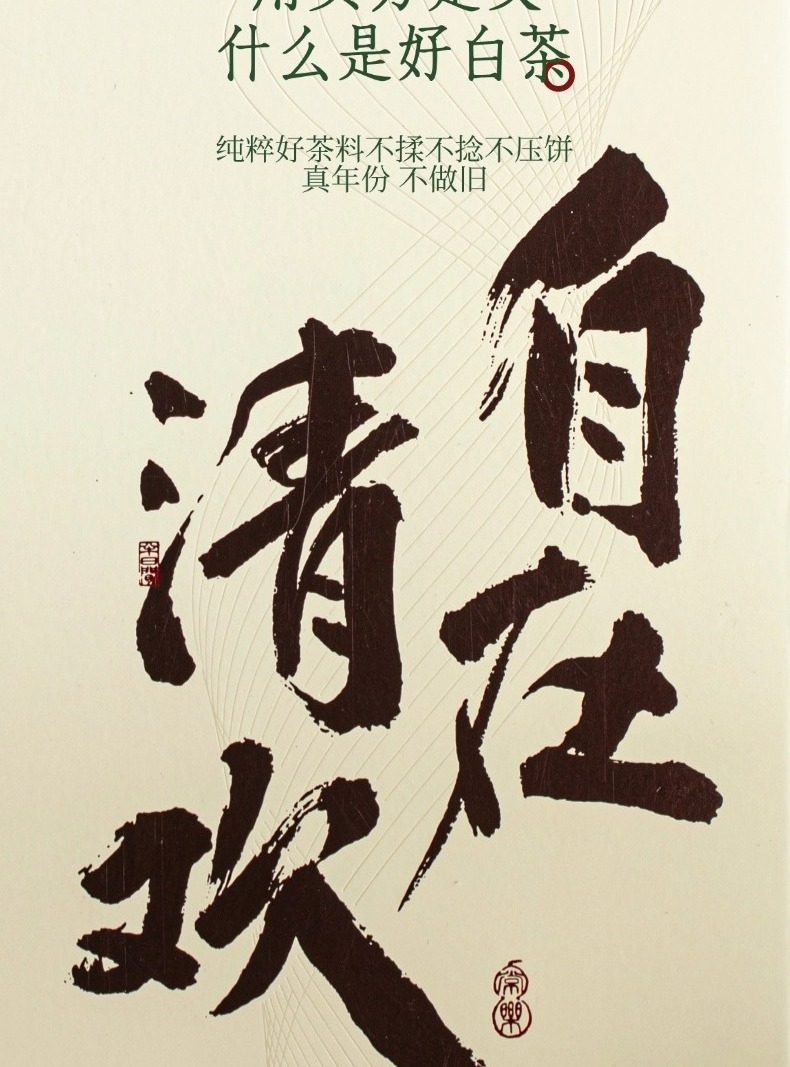 什么是好白茶
纯粹好茶料不揉不捻不压饼
真年份 不做旧
自在
清欢
常樂